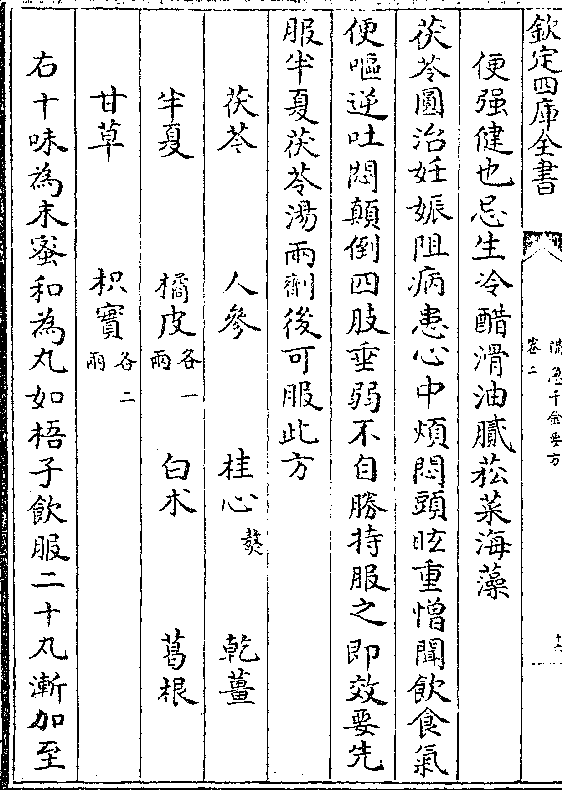 欽定四庫全書
備急千金要方
卷二
十六
便强健也忌生冷醋滑油膩菘菜海藻
茯苓圓治妊娠阻病患心中煩悶頭眩重憎聞飲食氣
便嘔逆吐悶顛倒四肢垂弱不自勝持服之即效要先
服半夏茯苓湯兩劑後可服此方
茯苓 人參 桂心熬 乾薑
半夏 橘皮各一兩 白术 葛根
甘草 枳實各二兩
右十味為末蜜和為丸如梧子飲服二十丸漸加至